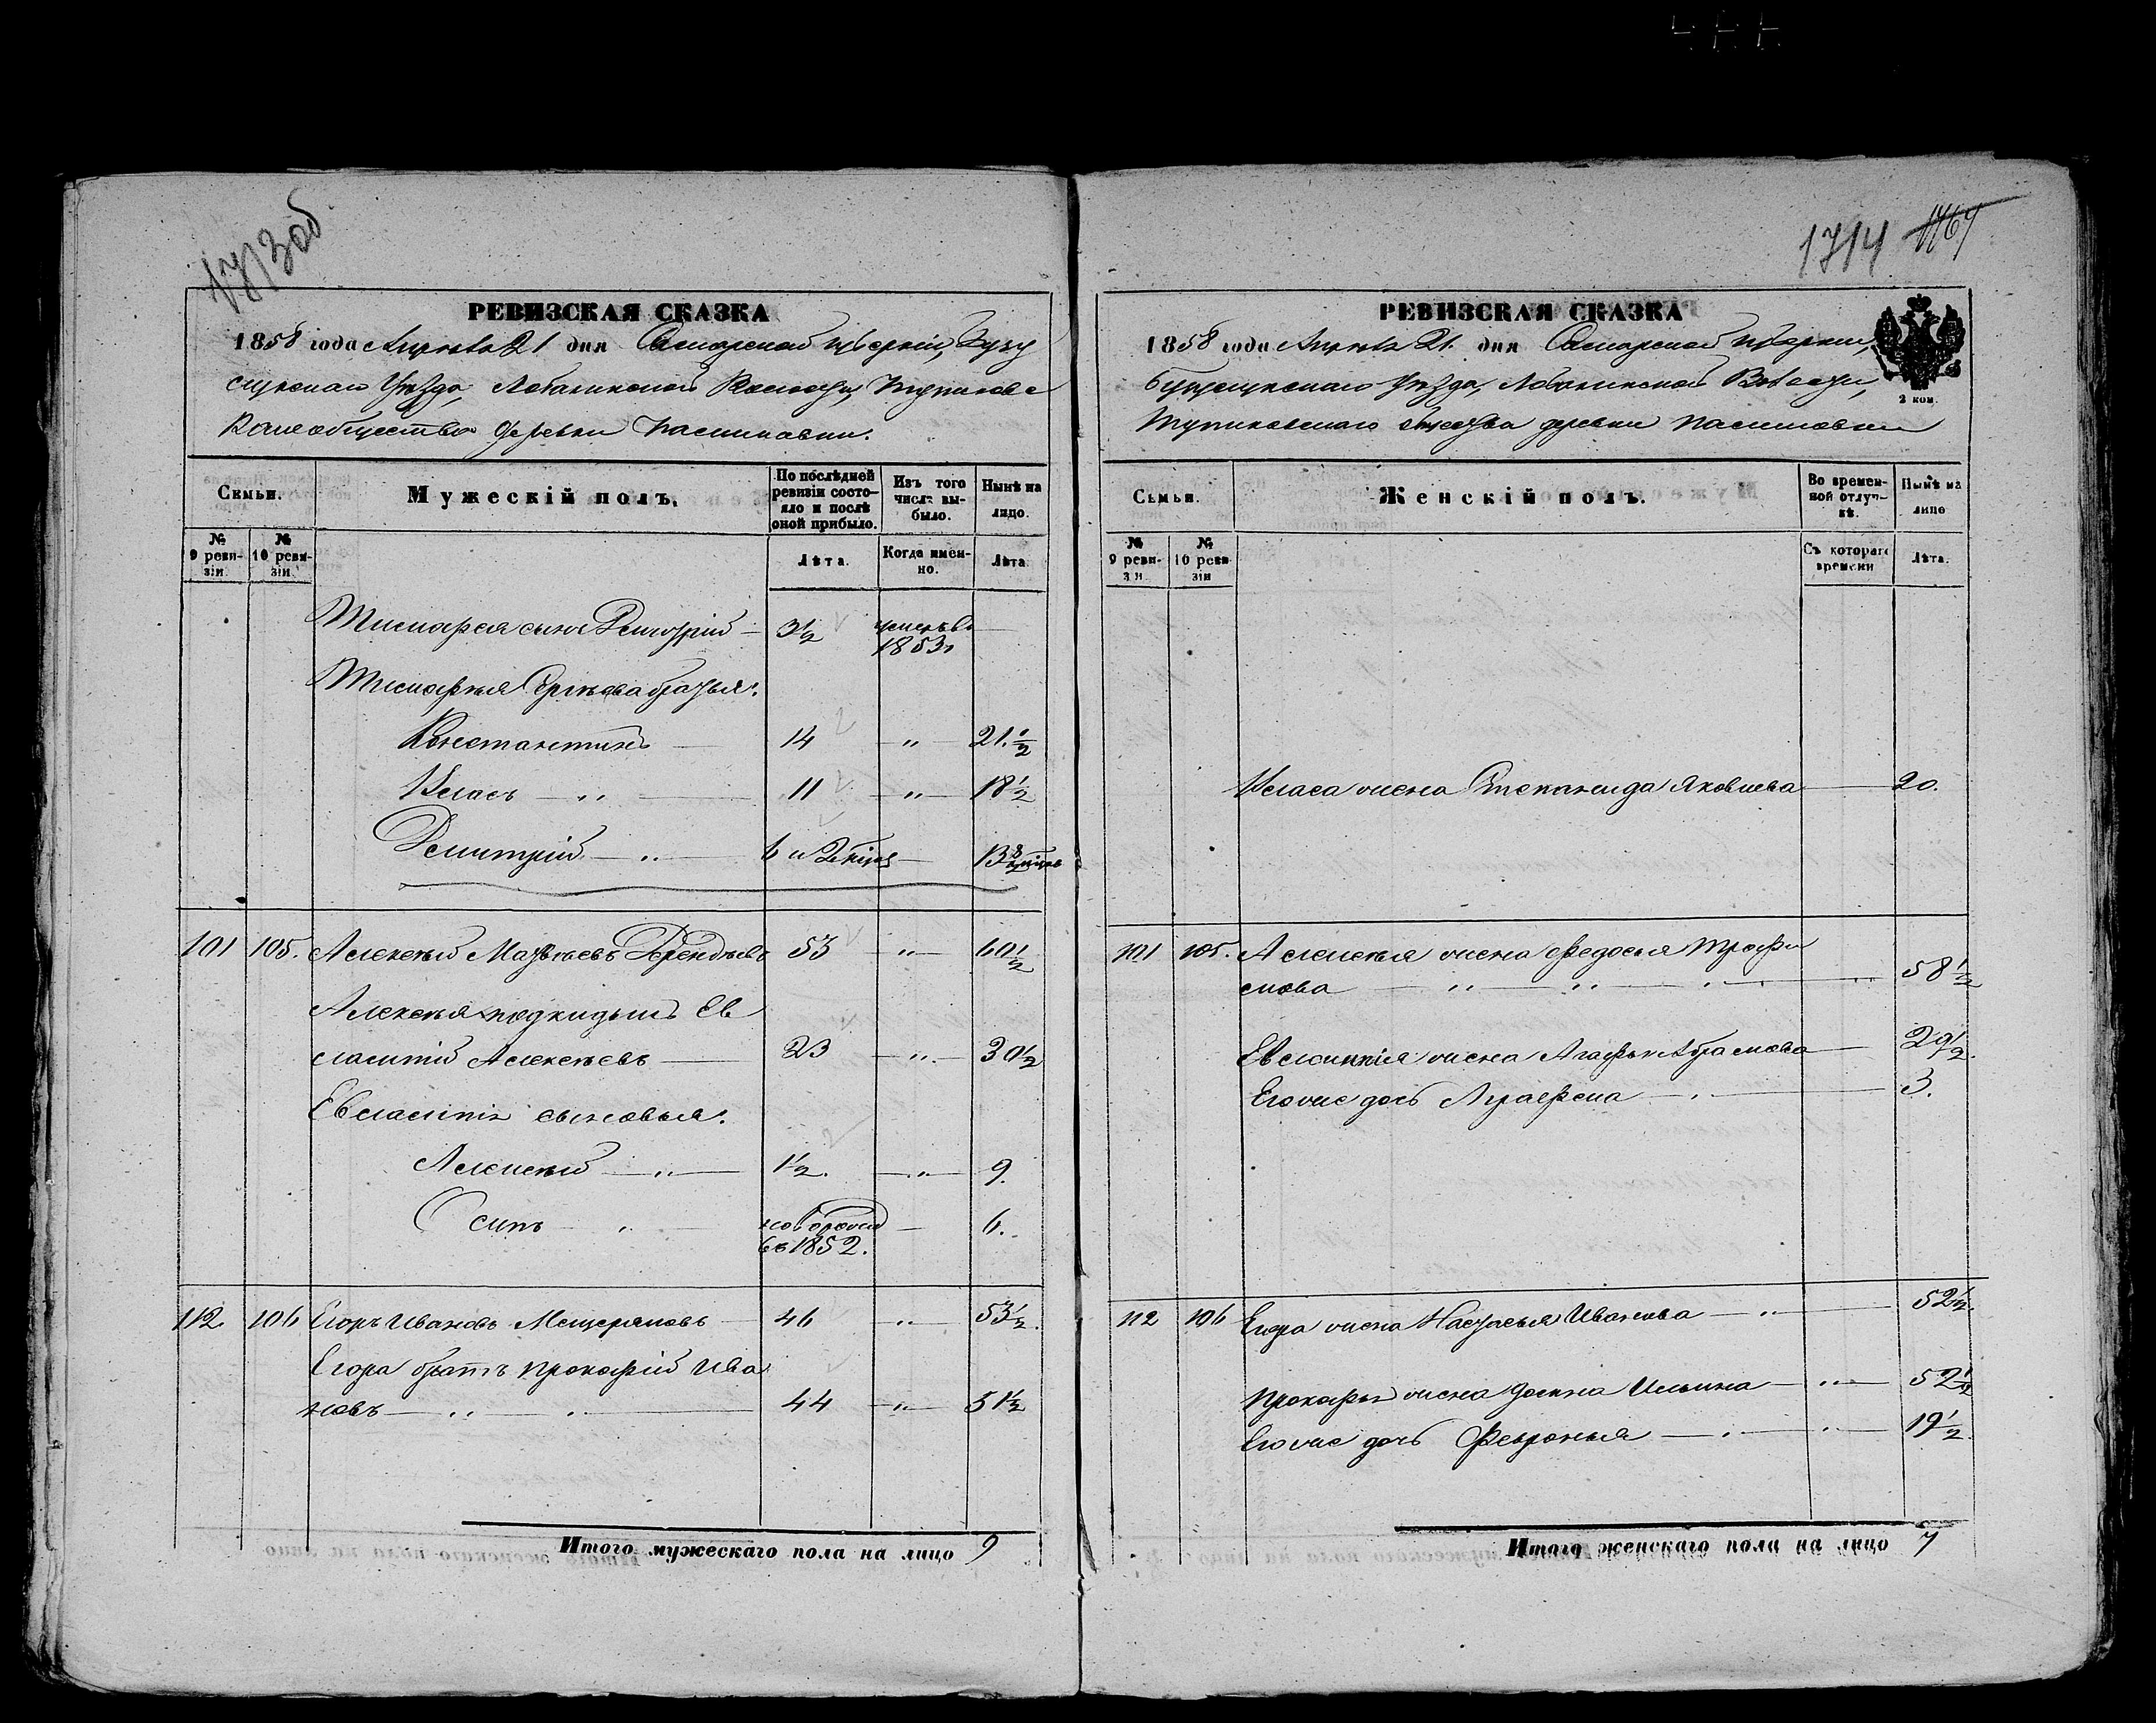 1713 об
РЕВИЗСКАЯ СКАЗКА
1858 года Апреля 21 дня Самарской губернии, Бузу
лукскаго Уезда, Лобазинской Волости,
общества деревни Пасмиковки.
Семьи.
Мужескій полъ.
По послѣдней ревизіи состо-яло и послѣ оной прибыло.
Изъ того числа вы-было.
Нынѣ на лицо.
№ 9 реви-зіи.
№ 10 реви-зіи.
Лѣта.
Когда имен-но.
Лѣта
Тимофея сынъ Дмитрій — 3½ умеръ въ 1853 г
Тимофея Сергѣева братья:
Константинъ — 14 — " — 21.½
Власъ — " — 11 — " — 18½
Дмитрій — " — 6 и 2 — 13
101 105. Алексѣй Матвѣевъ Дерендяевъ 53 — " — 60½
Алексѣя подкидышъ Ев
лампій Алексѣевъ — 23 — " — 30½
Евлампія сыновья:
Алексѣй — " — 1½. — " — 9.
Осипъ — " — новорожд — 6.
въ 1852.
112. 106 Егоръ Ивановъ Мещеряковъ — 46 — " — 53½.
Егора братъ Прокофій Ива
новъ — " — " — 44 — " — 51½
Итого мужескаго пола на лицо 9
1714 1764
РЕВИЗСКАЯ СКАЗКА
1858 года Апреля 21. дня Самарской губернии,
Бузулукскаго Уезда, Лобазинской Волости,
общества деревни Пасмиковки
2 коп.
Семьи.
Женскій полъ.
Во времен-ной отлуч-кѣ.
Нынѣ на лицо
№ 9 реви-зи.
№ 10 реви-зіи
Съ котораго времени
Лѣта.
Власа жена Степанида Яковлева — 20.
101 105. Алексѣя жена Федосья Трофи
мова — " — " — " — 58½
Евлампія жена Агафья Абрамова — 29½.
Его же дочь Аграфена — " — 3.
112 106 Егора жена Настасья Иванова — " — 52½.
Прокофья жена Домна Ильина — " — 52½
Его же дочь Февронья — " — " — 19½
Итого женскаго пола на лицо 7